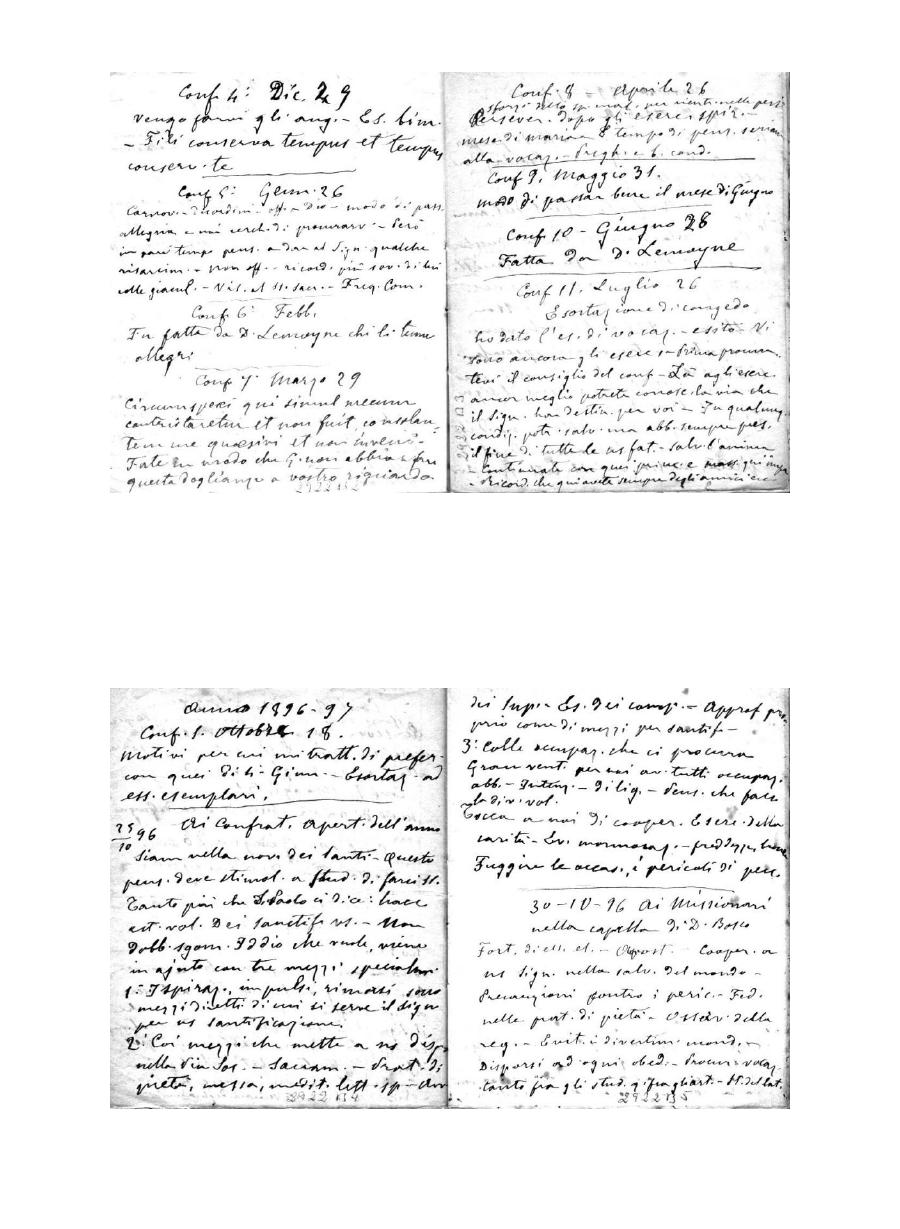 Conf. 4ª Dic. 29
vengo farvi gli aug. - Es. bim.
- Fili conserva tempus et tempus
conserv. te
Conf. 5ª Genn. 26
Carnov. - disordini - off. a Dio - modo di pass.
allegria e mi cerch. di procurarv. - Però
in pari tempo pens. a dar al Sign. qualche
risarcim. - non off. - ricord. più sov. di lui
colle giacul. - Vis. al SS. Sacr. - Freq. Com.
Conf. 6ª Febb.
Fu fatta da D. Lemoyne che li tenne
allegri
Conf. 7ª Marzo 29
Circumspexi qui simul mecum
contristaretur et non fuit, consolan-
tem me quaesivi et non inveni.
Fate in modo che G. non abbia a fare
questa doglianza a vostro riguardo
2922 B3
Conf. 8 - Aprile 26
sforzi dello sp. mal. per
Persever. dopo gli eserc. spir. -
mese di maria È tempo di pens. seriam.
alla vocaz. - Pregh. e b. cond.
Conf 9. Maggio 31.
modo di passar bene il mese di Giugno
Conf 10 - Giugno 28
Fatta da D. Lemoyne
Conf 11. Luglio 26
Esortazione di congedo
ho dato l'es. di vocaz. - esito - Vi
sono ancora gli eserc. - Prima procura-
tevi il consiglio del conf - Là agli eserc.
ancor meglio potrete conosc. la via che
il sign. ha destin. per voi - In qualunq.
condiz. potr. salv. ma abb. sempre pres.
il fine di tutte le ns fat. - salv. l'anima
- Continuate con quei princ. e mass. qui
- Ricord. che qui avete sempre degli amici
Anno 1896-97
Conf. 1. Ottobre 18.
Motivi per cui mi tratt. di prefer.
con quei di 4ª Ginn. - Esortaz. ad
ess. esemplari.
25/10 96 Ai Confrat. Apert. dell'anno
Siam nella nov. dei Santi - Questo
pens. deve stimol. a stud. di farci SS.
Tanto più che S. Paolo ci dice: haec
est vol. Dei sanctif. vs. - Non
dobb. sgom. Iddio che vuole, viene
in ajuto con tre mezzi specialm.
1º Ispiraz., impulsi, rimorsi sono
mezzi diretti di cui si serve il Sign
per ns santificazione.
2º Coi mezzi che mette a ns disp
nella Pia Soc. - Sacram. - Prat. di
pietà, messa, medit. lett. sp -
2922 B4
dei Sup. - Es. dei comp. - Approf
prio come di mezzi per santif -
3º Colle occupaz. che ci procura
Gran vent. per noi av. tutti occupaz.
abb. - Intenz. - dilig. - Pens. che facc.
la div. vol.
Tocca a noi di cooper. Eserc. della
carità - Ev. mormoraz. - freddezze,
Fuggire le occas., i pericoli di pecc.
30-10-96 Ai Missionari
nella capella di D. Bosco
Fort. di ess. el. - Apost. - Cooper. a
ns sign. nella salv. del mondo -
Precauzioni contro i peric. - Fed.
nelle prat. di pietà - Osserv. della
reg. - Evit. i divertim. mond. -
Disporsi ad ogni obed. - Procur. vocaz.
tanto fra gli stud. q. fra gli art. -
2922 B5